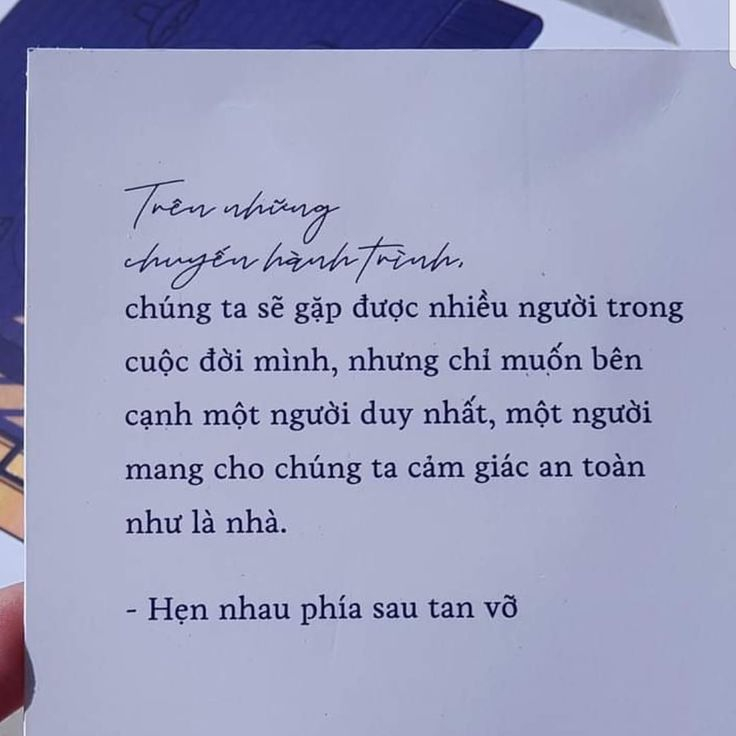 Trên những
chuyến hành trình,
chúng ta sẽ gặp được nhiều người trong
cuộc đời mình, nhưng chỉ muốn bên
cạnh một người duy nhất, một người
mang cho chúng ta cảm giác an toàn
như là nhà.
- Hẹn nhau phía sau tan vỡ